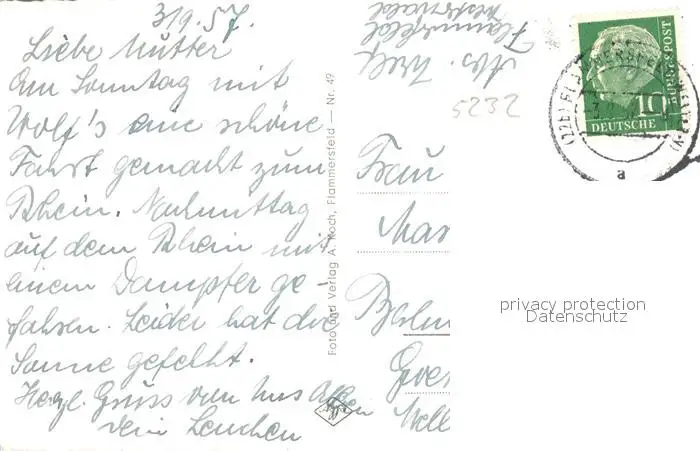 3/9.57.
Liebe Mutter
Am Sonntag mit
Wolf's eine schöne
Fahrt gemacht zum
Rhein. Nachmittag
auf dem Rhein mit
einem Dampfer ge-
fahren. Leider hat die
Sonne gefehlt.
Herzl. Gruss von uns Allen
Dein Lenchen
Foto und Verlag A. Koch, Flammersfeld — Nr. 49
Abs. Wolf
Flammersfeld
Westerwald
5232
Frau
Mar
Guer
DEUTSCHE
BUNDESPOST
10
(22b) FLAMMERSFELD
a
privacy protection
Datenschutz